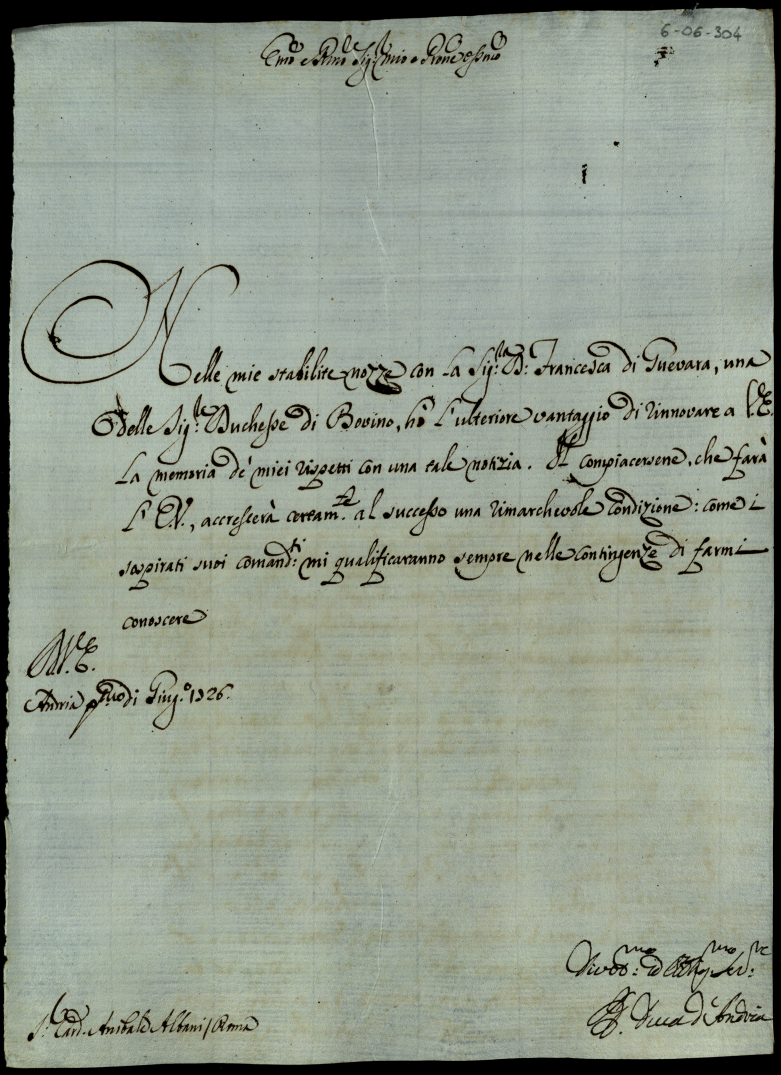 6-06-304
Em̃o e Rm̃o Sig.r mio e Pron̄e Oss.mo
Nelle mie stabilite nozze con la Sig.ra D. Francesca di Guevara, una
delle Sig.re Duchesse di Bovino, hò l'ulteriore vantaggio di rinnovare a V.E.
la memoria de' miei rispetti con una tale notizia. Il compiacersene, che farà
l'E.V., accrescerà certam.te al successo una rimarchevole condizione: come i
sospirati suoi comand.ti mi qualificaranno sempre nelle contingenze di farmi
conoscere
Di V.E.
Andria p.mo di Giug.o 1726.
Divot.mo ed Obblig.mo Ser.re
Il Duca d'Andria
S.r Card. Anibale Albani / Roma